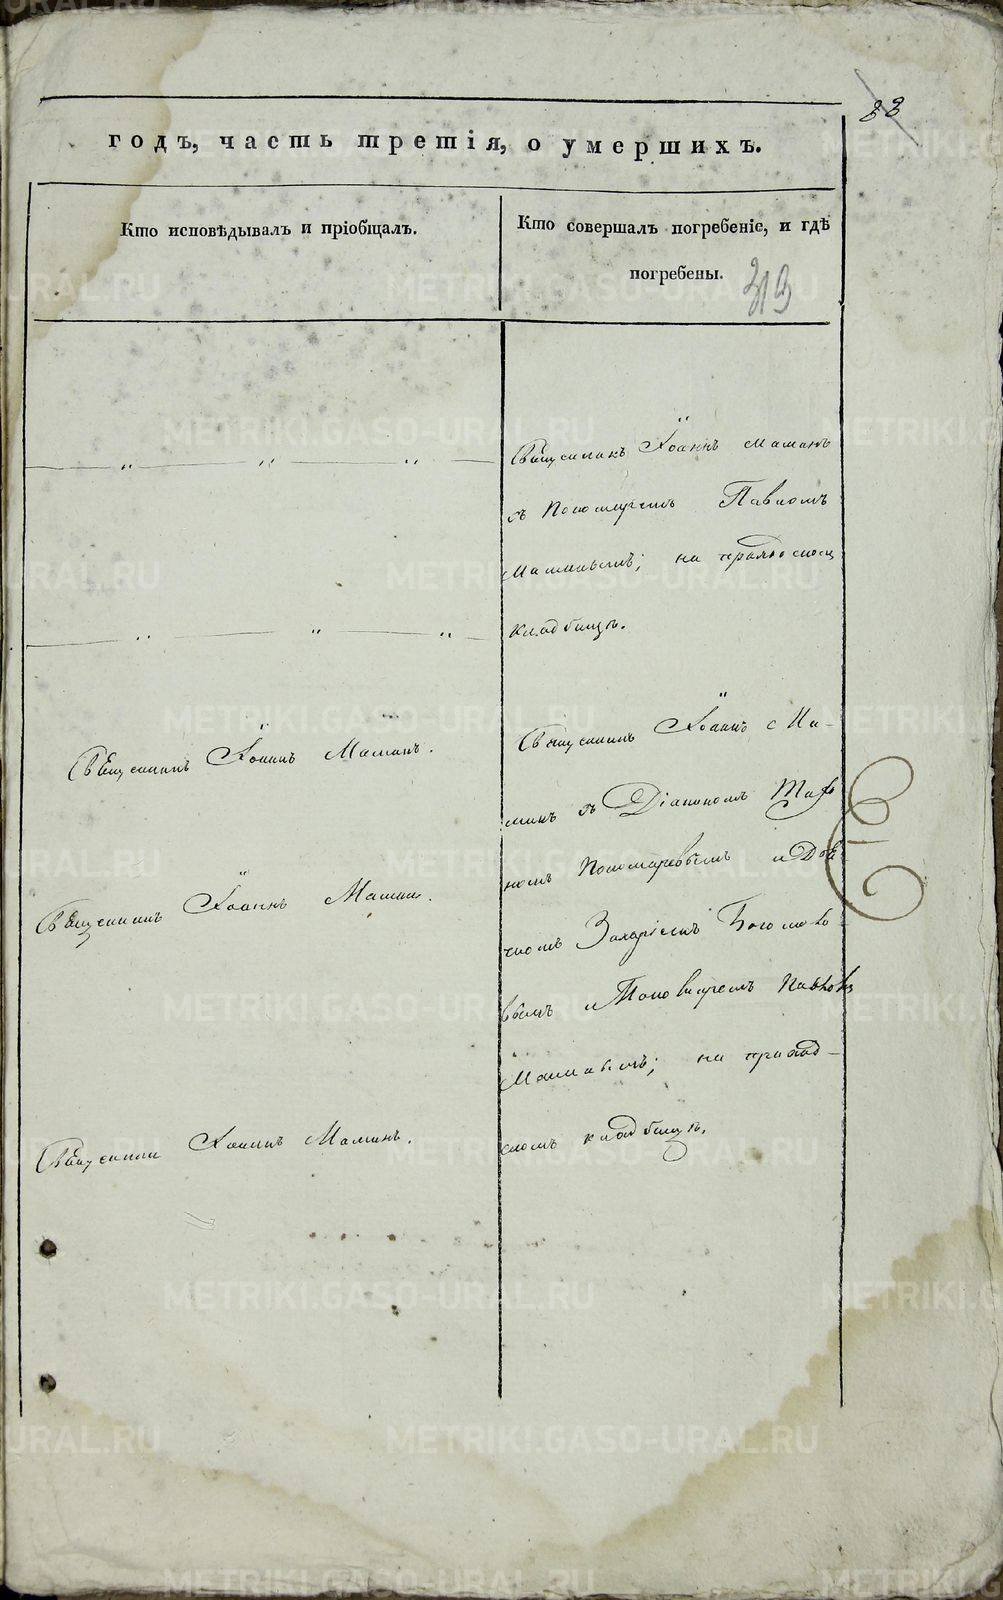 33
годъ, часть третія, о умершихъ.
Кто исповѣдывалъ и пріобщалъ.
Кто совершалъ погребеніе, и гдѣ
погребены.
313
Іоаннъ Маминъ
съ Пономаремъ Павломъ
на приходскомъ
кладбищѣ.
Священникъ Іоаннъ Маминъ.
Священникъ Іоаннъ Ма-
минъ съ Діакономъ
Пономаревымъ и Дья-
Захаріемъ
и Пономаремъ Павломъ
на приход-
скомъ кладбищѣ.
Священникъ Іоаннъ Маминъ.
Священникъ Іоаннъ Маминъ.
METRIKI.GASO-URAL.RU